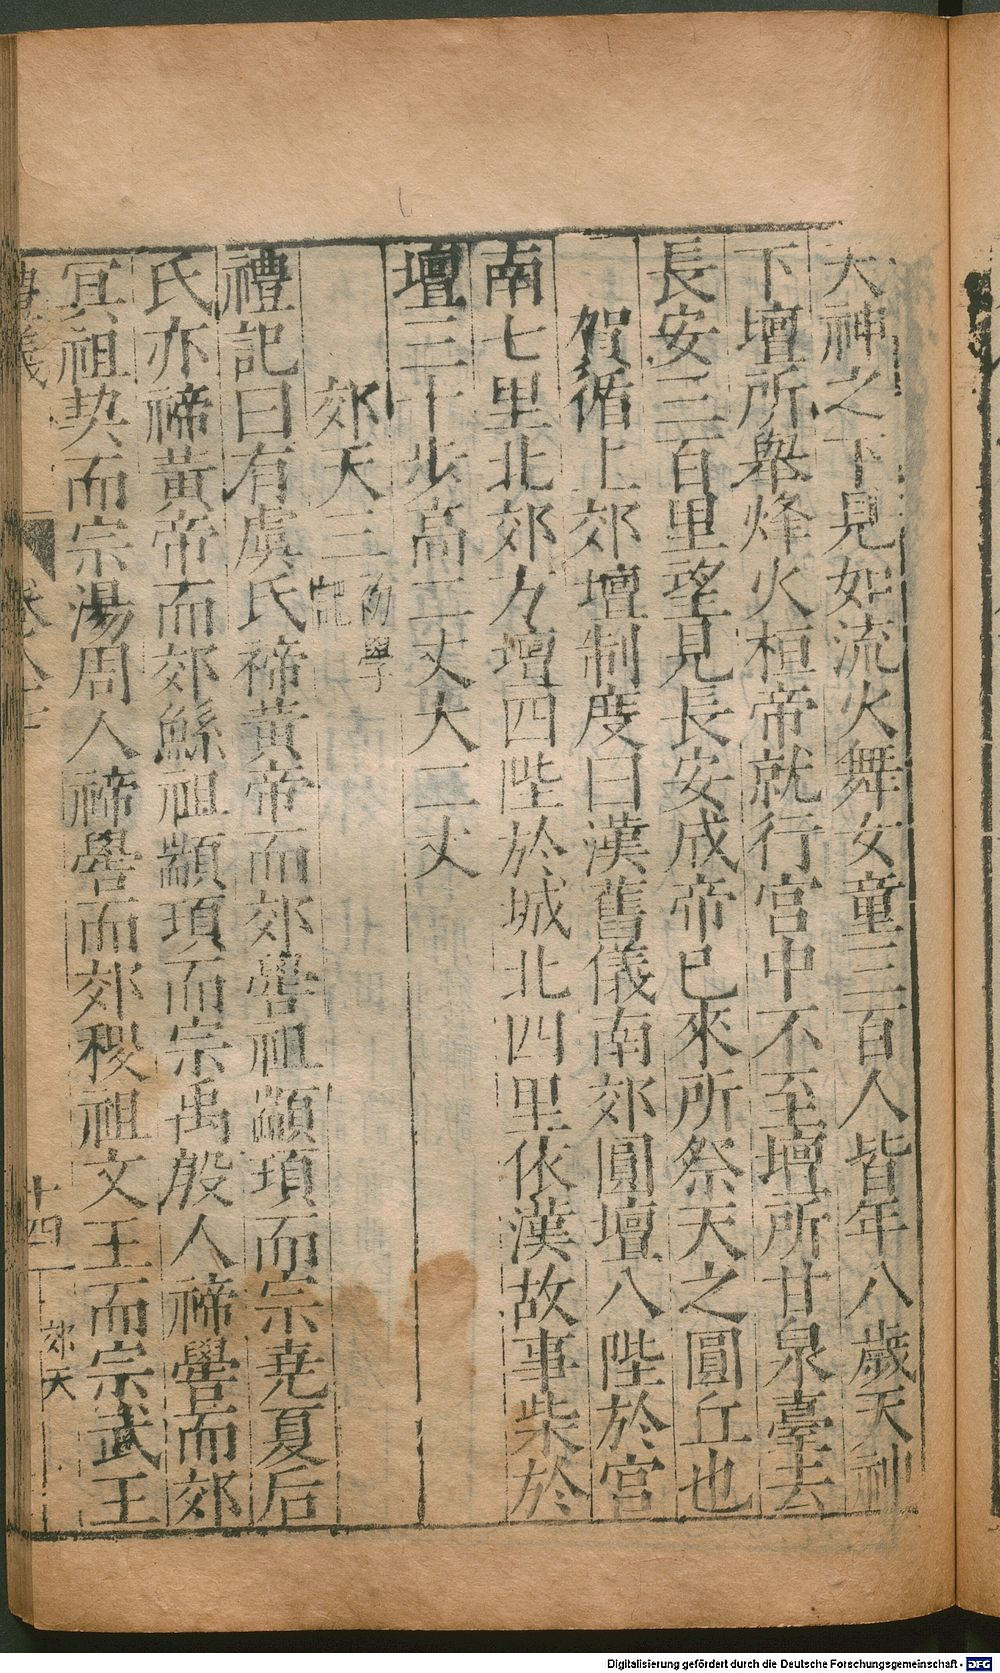 天神之下見如流火舞女童三百人皆年八歲天神
下壇所舉烽火桓帝就行宮中不至壇所甘泉臺去
長安三百里望見長安成帝已來所祭天之圓丘也
賀循上郊壇制度曰漢舊儀南郊圓壇八陛於宮
南七里北郊方壇四陛於城北四里依漢故事柴於
壇三十步高二丈大二丈
郊天三初學記
禮記曰有虞氏禘黃帝而郊嚳祖顓頊而宗堯夏后
氏亦禘黃帝而郊鯀祖顓頊而宗禹殷人禘嚳而郊
冥祖契而宗湯周人禘嚳而郊稷祖文王而宗武王
十四 郊天
Digitalisierung gefördert durch die Deutsche Forschungsgemeinschaft - DFG